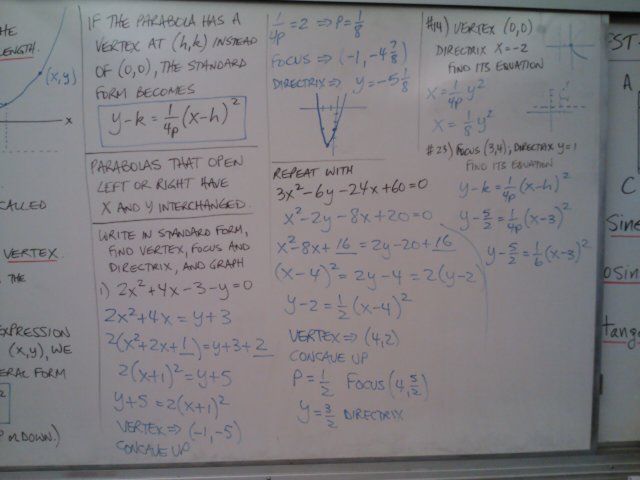 HE
LENGTH.
(x,y)
x
CALLED
VERTEX.
THE
EXPRESSION
(x,y), WE
ERAL FORM
DOWN.)
IF THE PARABOLA HAS A
VERTEX AT (h,k) INSTEAD
OF (0,0), THE STANDARD
FORM BECOMES
y-k = 1/4p (x-h)²
PARABOLAS THAT OPEN
LEFT OR RIGHT HAVE
X AND Y INTERCHANGED.
WRITE IN STANDARD FORM,
FIND VERTEX, FOCUS AND
DIRECTRIX, AND GRAPH
1) 2x²+4x-3-y=0
2x²+4x = y+3
2(x²+2x+1)=y+3+2
2(x+1)²=y+5
y+5=2(x+1)²
VERTEX ⇒ (-1,-5)
CONCAVE UP
1/4p = 2 ⇒ P = 1/8
FOCUS ⇒ (-1, -4 7/8)
DIRECTRIX ⇒ y = -5 1/8
REPEAT WITH
3x²-6y-24x+60=0
x²-2y-8x+20=0
x²-8x+16 = 2y-20+16
(x-4)² = 2y-4 = 2(y-2
y-2 = 1/2 (x-4)²
VERTEX ⇒ (4,2)
CONCAVE UP
P = 1/2 FOCUS (4, 5/2)
y = 3/2 DIRECTRIX
#14) VERTEX (0,0)
DIRECTRIX X=-2
FIND ITS EQUATION
X = 1/4p y²
X = 1/8 y²
#23) FOCUS (3,4); DIRECTRIX y=1
FIND ITS EQUATION
y-k = 1/4p (x-h)²
y-5/2 = 1/4p (x-3)²
y-5/2 = 1/6 (x-3)²
ST
A
C
Sine
osin
tang